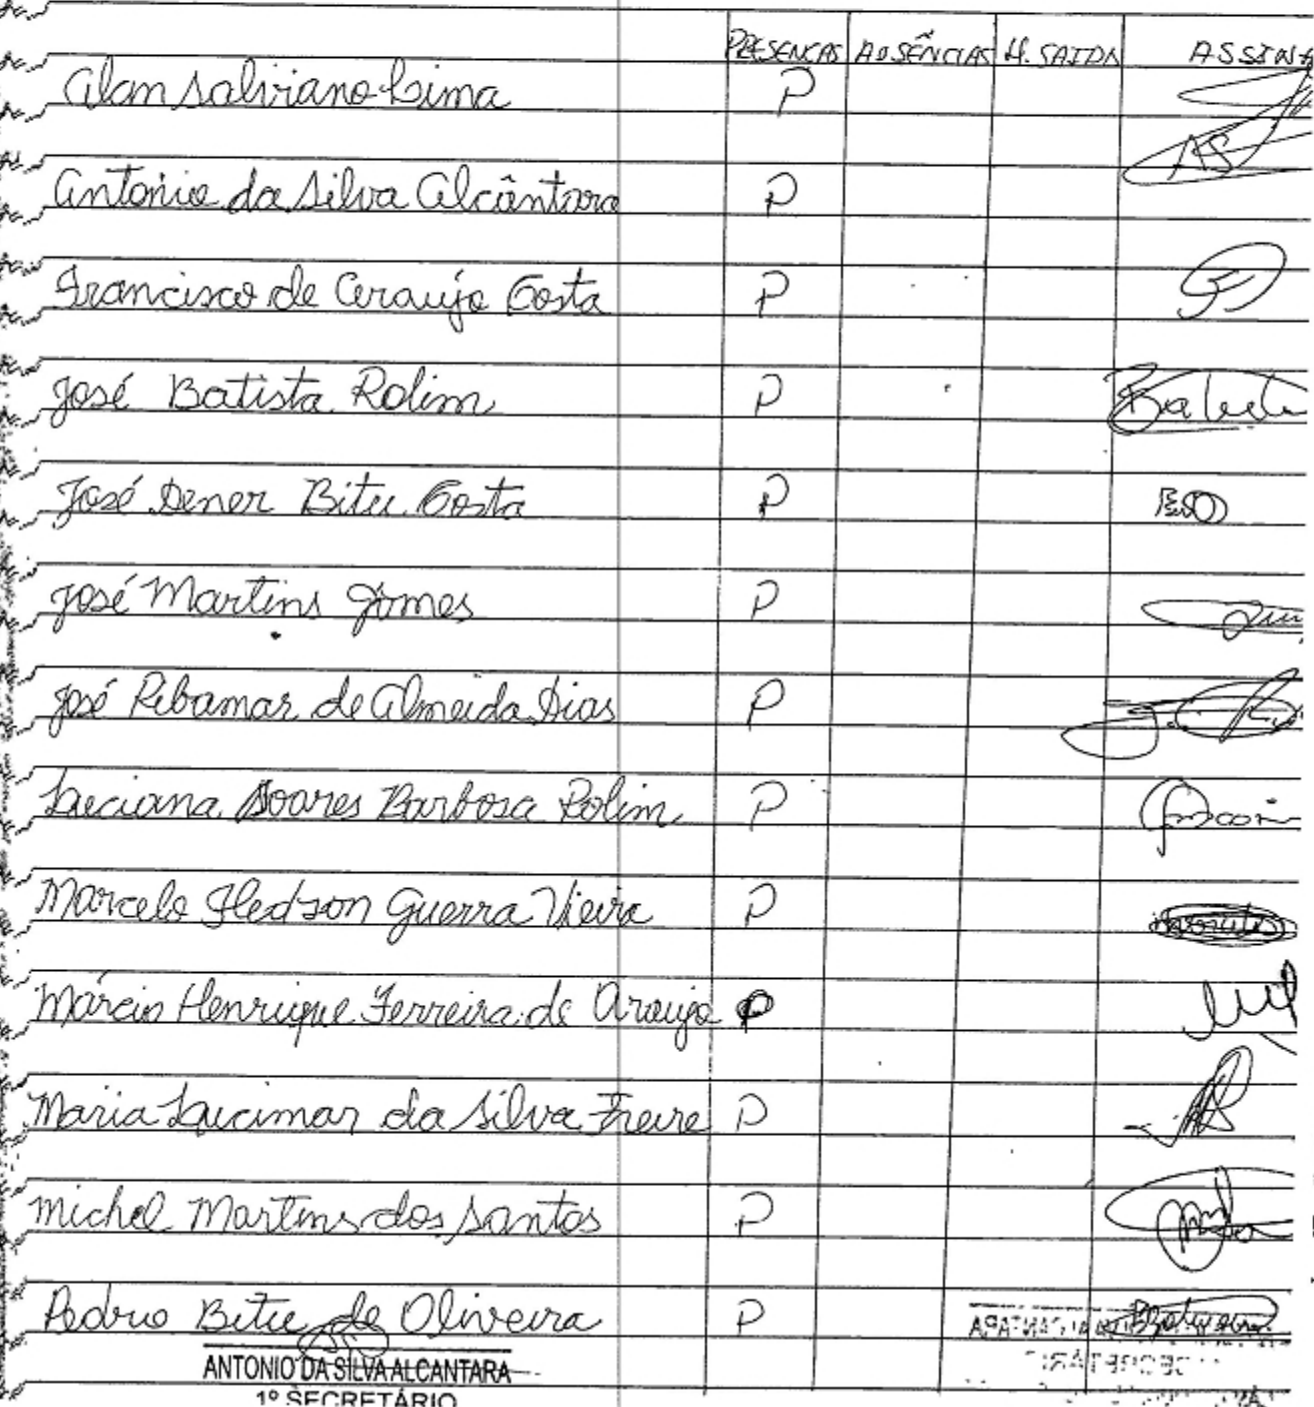 PRESENCAS AUSÊNCIAS H. SAIDA ASSINA
Alan Salviano Lima P
AS
Antonio da Silva Alcântara P
Francisco de Araujo Costa P
José Batista Rolim P Batista
José Dener Bitu Costa P
José Martins Gomes P
José Ribamar de Almeida Dias P
Luciana Soares Barbosa Rolim P
Marcelo Hledson Guerra Vieira P
Márcio Henrique Ferreira de Araujo P
Maria Lucimar da Silva Freire P
Michel Martins dos Santos P
Pedro Bitu de Oliveira P
ANTONIO DA SILVA ALCANTARA
1º SECRETÁRIO